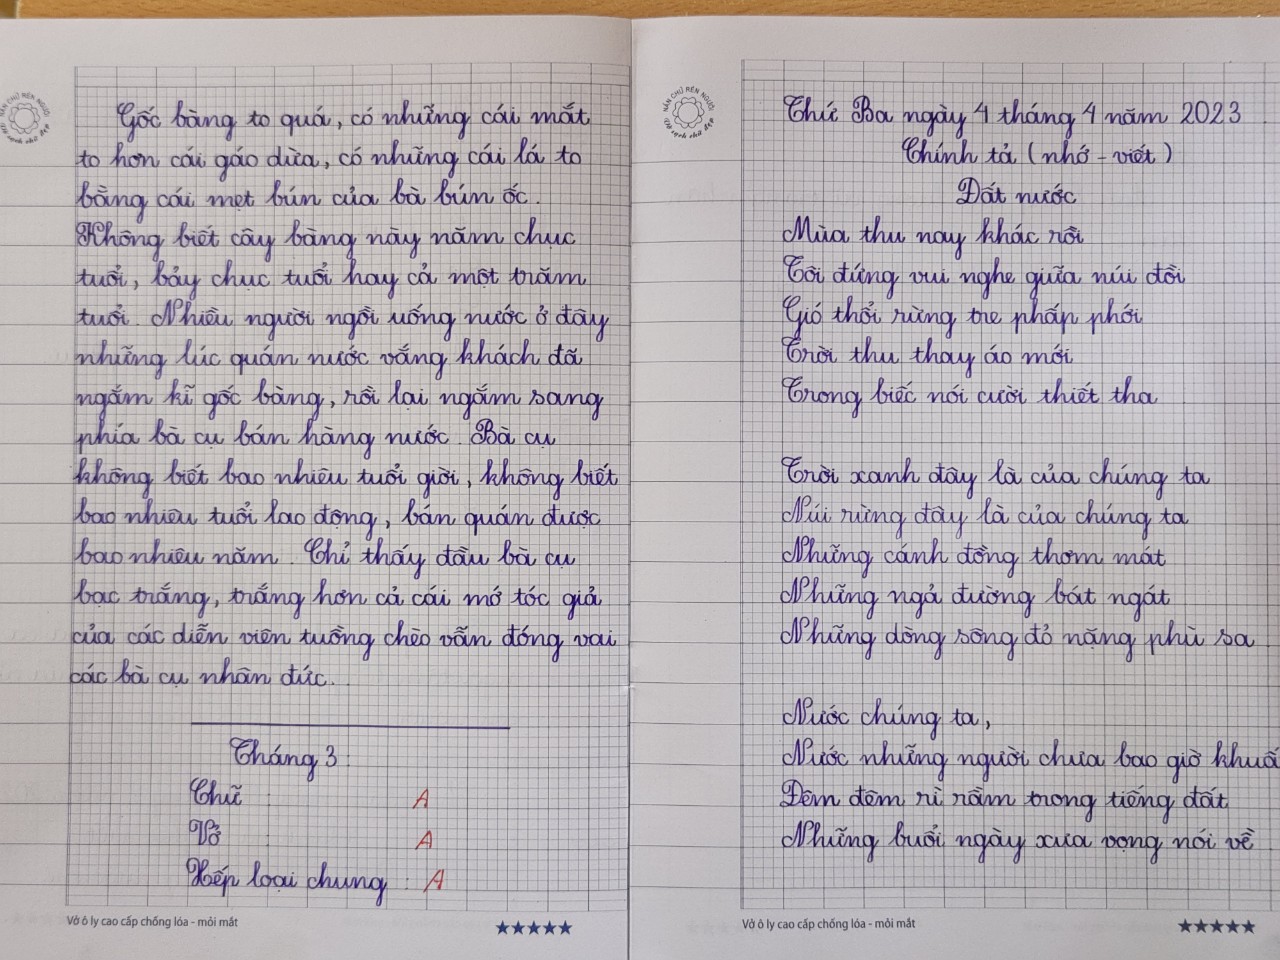 NÉT CHỮ RÈN NGƯỜI
Vở sạch chữ đẹp
Gốc bàng to quá, có những cái mắt
to hơn cái gáo dừa, có những cái lá to
bằng cái mẹt bún của bà bún ốc.
Không biết cây bàng này năm chục
tuổi, bảy chục tuổi hay cả một trăm
tuổi. Nhiều người ngồi uống nước ở đây
những lúc quán nước vắng khách đã
ngắm kĩ gốc bàng, rồi lại ngắm sang
phía bà cụ bán hàng nước. Bà cụ
không biết bao nhiêu tuổi giời, không biết
bao nhiêu tuổi lao động, bán quán được
bao nhiêu năm. Chỉ thấy đầu bà cụ
bạc trắng, trắng hơn cả cái mớ tóc giả
của các diễn viên tuồng chèo vẫn đóng vai
các bà cụ nhân đức.
Tháng 3:
Chữ : A
Vở : A
Xếp loại chung : A
Vở ô ly cao cấp chống lóa - mỏi mắt
NẮN CHỮ RÈN NGƯỜI
Vở sạch chữ đẹp
Thứ Ba ngày 4 tháng 4 năm 2023
Chính tả (nhớ - viết)
Đất nước
Mùa thu nay khác rồi
Tôi đứng vui nghe giữa núi đồi
Gió thổi rừng tre phấp phới
Trời thu thay áo mới
Trong biếc nói cười thiết tha
Trời xanh đây là của chúng ta
Núi rừng đây là của chúng ta
Những cánh đồng thơm mát
Những ngả đường bát ngát
Những dòng sông đỏ nặng phù sa
Nước chúng ta,
Nước những người chưa bao giờ khuấ
Đêm đêm rì rầm trong tiếng đất
Những buổi ngày xưa vọng nói về
Vở ô ly cao cấp chống lóa - mỏi mắt